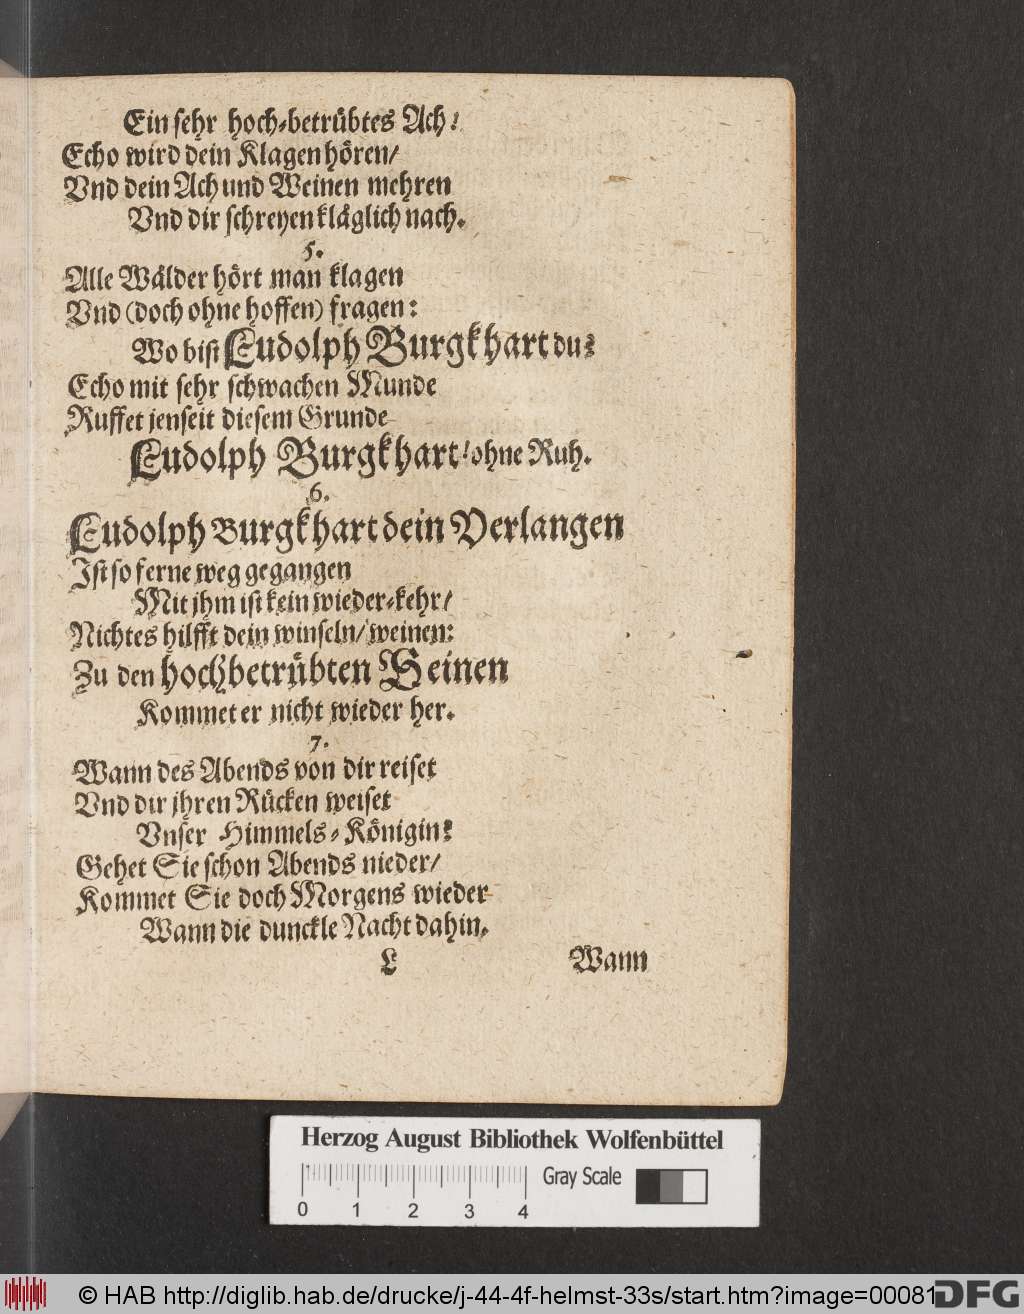 Ein sehr hoch-betrübtes Ach!
Echo wird dein Klagen hören/
Vnd dein Ach und Weinen mehren
Vnd dir schreyen kläglich nach.
5.
Alle Wälder hört man klagen
Vnd (doch ohne hoffen) fragen:
Wo bist Ludolph Burgkhart du?
Echo mit sehr schwachen Munde
Ruffet jenseit diesem Grunde
Ludolph Burgkhart! ohne Ruh.
6.
Ludolph Burgkhart dein Verlangen
Ist so ferne weg gegangen
Mit jhm ist kein wieder-kehr/
Nichtes hilfft dein winseln/ weinen:
Zu den hochbetrübten Seinen
Kommet er nicht wieder her.
7.
Wann des Abends von dir reiset
Vnd dir jhren Rücken weiset
Vnser Himmels-Königin?
Gehet Sie schon Abends nieder/
Kommet Sie doch Morgens wieder
Wann die dunckle Nacht dahin.
L Wann
Herzog August Bibliothek Wolfenbüttel
Gray Scale
0 1 2 3 4
© HAB http://diglib.hab.de/drucke/j-44-4f-helmst-33s/start.htm?image=00081
DFG